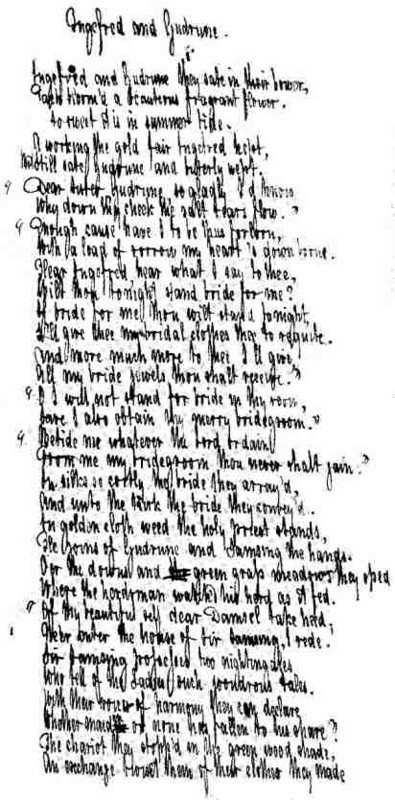 Ingefred and Gudrune.
Ingefred and Gudrune they sate in their bower,
Each worm'd a beauteous fragrant flower.
So sweet it is in summer tide.
A working the gold fair Ingefred kept,
still sate Gudrune and bitterly wept.
"Dear sister Gudrune so gladly I'd know
Why down thy cheek the salt tears flow."
"Enough cause have I to be thus forlorn,
With a load of sorrow my heart is down borne.
Hear Ingefred, hear what I say to thee,
Wilt thou tonight stand bride for me?
If bride for me thou wilt stand tonight,
I'll give thee my bridal clothes thee to requite.
And more much more to thee I'll give
All my bride jewels thou shalt receive."
"O I will not stand for bride in thy room,
Save I also obtain thy merry bridegroom."
"Betide me whatever the Lord ordain
From me my bridegroom thou never shalt gain."
In silks so costly the bride they array'd,
And unto the kirk the bride they convey'd.
In golden cloth weed the holy priest stands,
He joins of Gudrune and Samsing the hands.
O'er the downs and green grass meadows they sped
Where the herdsman watch'd his herd as it fed.
"Of thy beauteous self dear Damsel take heed,
Ne'er enter the house of Sir Samsing, I rede.
Sir Samsing possesses two nightingales
Who tell of the Ladies such wondrous tales.
With their voices of harmony they can declare
Whether maid or none has fallen to his share."
The chariot they stopp'd in the green wood shade,
An exchange 'twixt them of their clothes they made